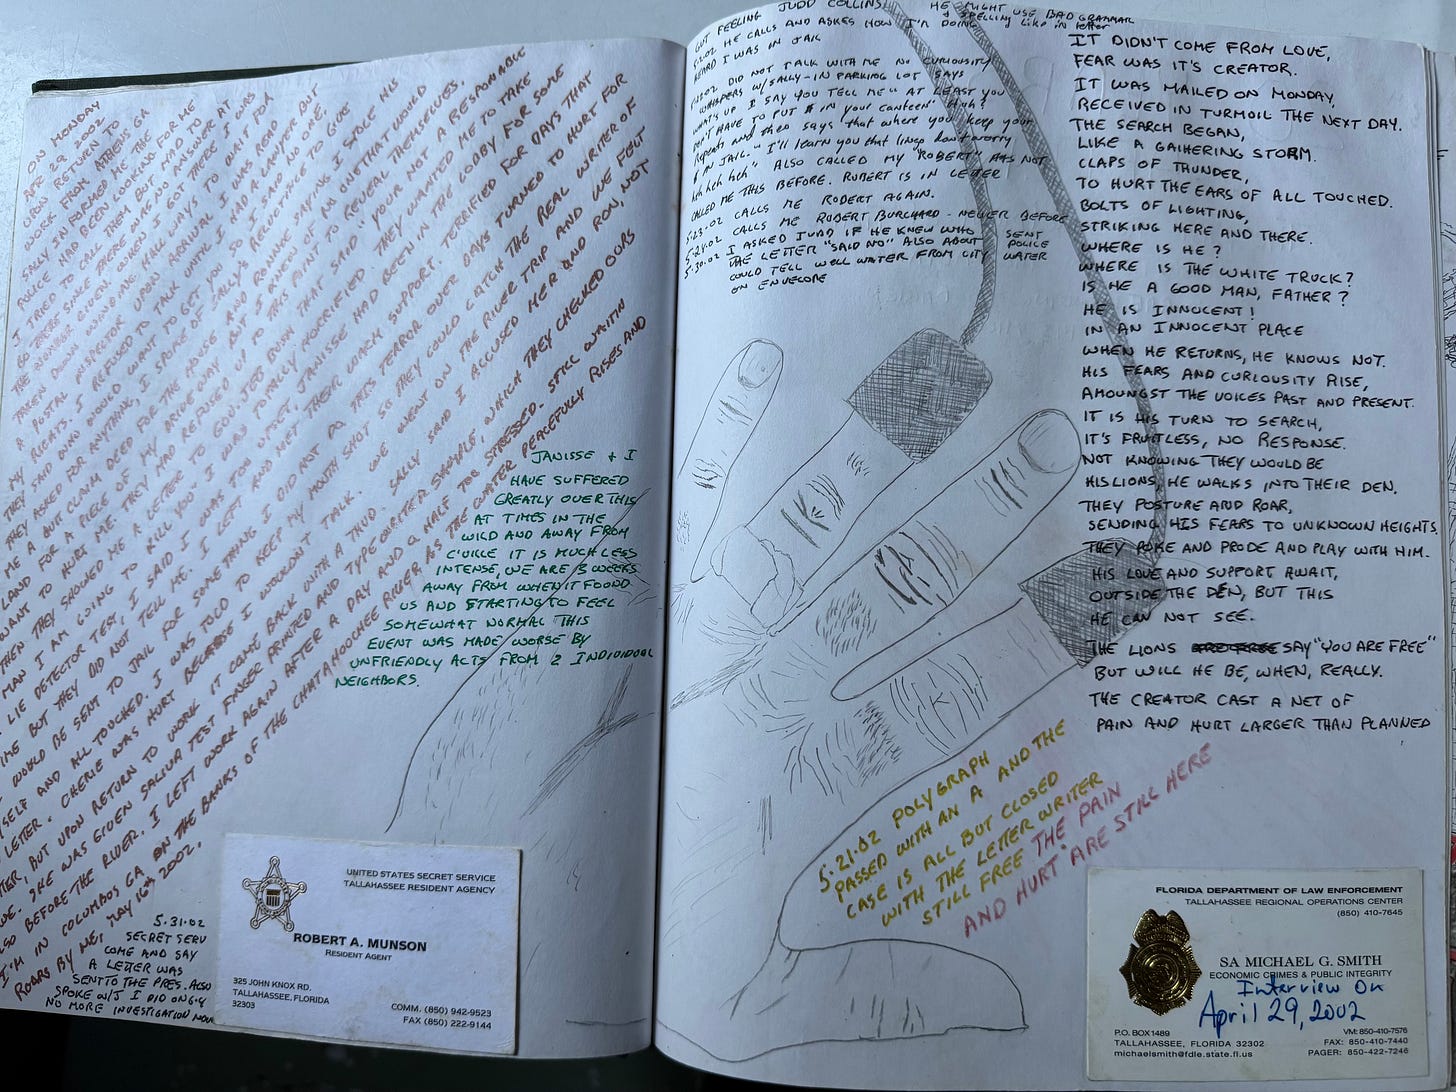 ON MONDAY
APR 29 2002
UPON RETURN TO
WORK FROM ATHENS GA
SALLY INFORMED ME THE
HAD BEEN LOOKING FOR ME
I TRIED TO CALL THEM BUT HAD TO
THERE WAS NO ANSWER AT
THE NUMBER GIVEN. WHEN I GOT TO THE
TAKEN DOWN
A POSTAL INSPECTOR UPON ARRIVAL I WAS READ
MY RIGHTS. I REFUSED TO TALK UNTIL I HAD A LAWYER BUT
THEY SAID WHO WOULD WANT TO
THEY ASKED FOR ANYTHING, I SPOKE OF
ME A QUIT CLAIM DEED FOR THE HOUSE AND RONALD SAYING I STOLE HIS
LAND FOR A PIECE OF MY DRIVE WAY BUT I
WANT TO HURT ME, THEY HAD REFUSED UP TO THIS DAY
THEN THEY SHOWED ME A LETTER TO GOV. JEB BUSH THAT SAID
MAN I AM GOING TO KILL YOU". I WAS TOTALLY HORRIFIED THEY WANTED ME TO TAKE
A LIE DETECTOR TEST, I SAID I WAS TOO UPSET, JANISSE HAD BEEN IN THE LOBBY FOR SOME
TIME BUT THEY DID NOT TELL ME. I LEFT AND MET
WOULD BE SENT TO JAIL FOR SOMETHING I DID NOT DO. THIS TERROR OVER DAYS TURNED TO HURT FOR
MYSELF AND ALL TOUCHED. I WAS TOLD TO KEEP MY MOUTH SHUT SO THEY COULD CATCH THE REAL WRITER OF
LETTER. CHERIE WAS HURT BECAUSE I WOULDNT TALK. WE WENT ON THE RIVER TRIP AND WE FELT
BUT UPON RETURN TO WORK IT CAME BACK WITH A THUD. SALLY SAID I ACCUSED HER AND RON, NOT
SHE WAS GIVEN SALIVA TEST FINGER PRINTED AND TYPE WRITER SAMPLE, WHICH THEY CHECKED OURS
ALSO BEFORE THE RIVER. I LEFT WORK AGAIN AFTER A DAY AND A HALF TOO STRESSED. STILL WRITIN
I'M IN COLUMBUS GA ON THE BANKS OF THE CHATTAHOOCHEE RIVER, AS THE WATER PEACEFULLY RISES AND
ROARS BY ME, MAY 16th 2002.
JANISSE + I
HAVE SUFFERED
GREATLY OVER THIS
AT TIMES IN THE
WILD AND AWAY FROM
C'VILLE IT IS MUCH LESS
INTENSE, WE ARE 3 WEEKS
AWAY FROM WHEN IT FOUND
US AND STARTING TO FEEL
SOMEWHAT NORMAL THIS
EVENT WAS MADE WORSE BY
UNFRIENDLY ACTS FROM 2 INDIVIDUAL
NEIGHBORS.
5.31.02
SECRET SERV
COME AND SAY
A LETTER WAS
SENT TO THE PRES. ALSO
SPOKE W/J I DID ONGLY
NO MORE INVESTIGATION NOW
UNITED STATES SECRET SERVICE
TALLAHASSEE RESIDENT AGENCY
ROBERT A. MUNSON
RESIDENT AGENT
325 JOHN KNOX RD.
TALLAHASSEE, FLORIDA
32303
COMM. (850) 942-9523
FAX (850) 222-9144
GUT FEELING JUDD COLLINS HE MIGHT USE BAD GRAMMAR
& SPELLING LIKE IN letter
5.2.02 HE CALLS AND ASKES HOW I'M DOING
HEARD I WAS IN JAIL
DID NOT TALK WITH ME NO CURIOUSITY
WHISPERS W/SALLY - IN PARKING LOT SAYS
WHAT'S UP I SAY YOU TELL ME "AT LEAST you
DON'T HAVE TO PUT $ IN your CANTEEN" Huh?
Repeats and then says that where you keep your
$ IN JAIL. "I'll learn you that lingo don't worry
heh heh heh" ALSO CALLED MY "ROBERT" HAS NOT
CALLED ME THIS BEFORE. ROBERT IS IN LETTER
5.23.02 CALLS ME ROBERT AGAIN.
5.24.02 CALLS ME ROBERT BURCHARD - NEVER BEFORE
5.30.02 I ASKED JUDD IF HE KNEW WHO SENT
THE LETTER "SAID NO" ALSO ABOUT POLICE
COULD TELL WELL WATER FROM CITY WATER
ON ENVELOPE
IT DIDN'T COME FROM LOVE,
FEAR WAS IT'S CREATOR.
IT WAS MAILED ON MONDAY,
RECEIVED IN TURMOIL THE NEXT DAY.
THE SEARCH BEGAN,
LIKE A GAIHERING STORM.
CLAPS OF THUNDER,
TO HURT THE EARS OF ALL TOUCHED.
BOLTS OF LIGHTING,
STRIKING HERE AND THERE.
WHERE IS HE?
WHERE IS THE WHITE TRUCK?
IS HE A GOOD MAN, FATHER?
HE IS INNOCENT!
IN AN INNOCENT PLACE
WHEN HE RETURNS, HE KNOWS NOT.
HIS FEARS AND CURIOUSITY RISE,
AMOUNGST THE VOICES PAST AND PRESENT.
IT IS HIS TURN TO SEARCH,
IT'S FRUITLESS, NO RESPONSE.
NOT KNOWING THEY WOULD BE
HIS LIONS, HE WALKS INTO THEIR DEN.
THEY POSTURE AND ROAR,
SENDING HIS FEARS TO UNKNOWN HEIGHTS.
THEY POKE AND PRODE AND PLAY WITH HIM.
HIS LOVE AND SUPPORT AWAIT,
OUTSIDE THE DEN, BUT THIS
HE CAN NOT SEE.
THE LIONS SAY "YOU ARE FREE"
BUT WILL HE BE, WHEN, REALLY.
THE CREATOR CAST A NET OF
PAIN AND HURT LARGER THAN PLANNED
5.21.02 POLYGRAPH
PASSED WITH AN A AND THE
CASE IS ALL BUT CLOSED
WITH THE LETTER WRITER
STILL FREE THE PAIN
AND HURT ARE STILL HERE
FLORIDA DEPARTMENT OF LAW ENFORCEMENT
TALLAHASSEE REGIONAL OPERATIONS CENTER
(850) 410-7645
SA MICHAEL G. SMITH
ECONOMIC CRIMES & PUBLIC INTEGRITY
Interview On
April 29, 2002
P.O. BOX 1489
TALLAHASSEE, FLORIDA 32302
michaelsmith@fdle.state.fl.us
VM: 850-410-7576
FAX: 850-410-7440
PAGER: 850-422-7246